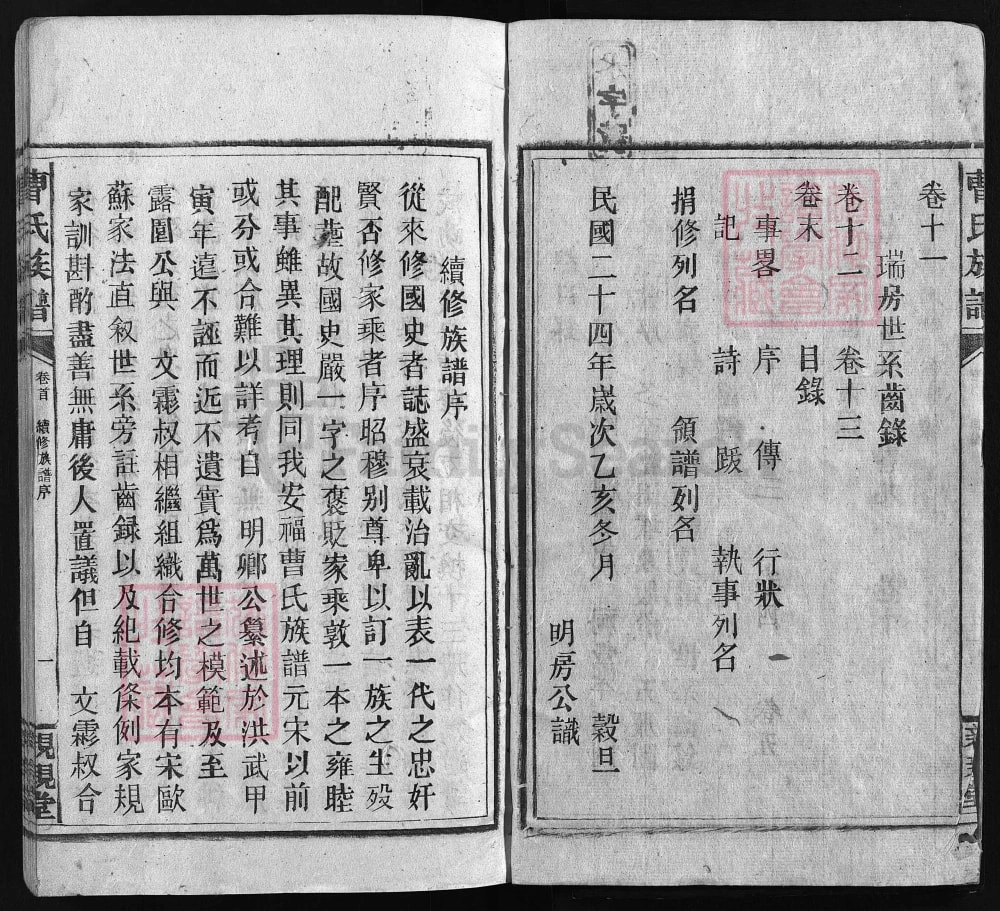 曹氏族譜
卷十一
瑞房世系齒錄
卷十二　卷十三
卷末　目錄
事畧　序　傳　行狀
記　詩　跋　執事列名
捐修列名　領譜列名
民國二十四年歲次乙亥冬月　穀旦
明房公識
續修族譜序
從來修國史者誌盛衰載治亂以表一代之忠奸
賢否修家乘者序昭穆别尊卑以訂一族之生殁
配塟故國史嚴一字之褒貶家乘敦一本之雍睦
其事雖異其理則同我安福曹氏族譜元宋以前
或分或合難以詳考自　明鄉公纂述於洪武甲
寅年遠不誣而近不遺實爲萬世之模範及至
露園公與　文霦叔相繼組織合修均本有宋歐
蘇家法直叙世系旁註齒録以及紀載條例家規
家訓斟酌盡善無庸後人置議但自　文霦叔合
曹氏族譜
卷首　續修族譜序
一
親親堂